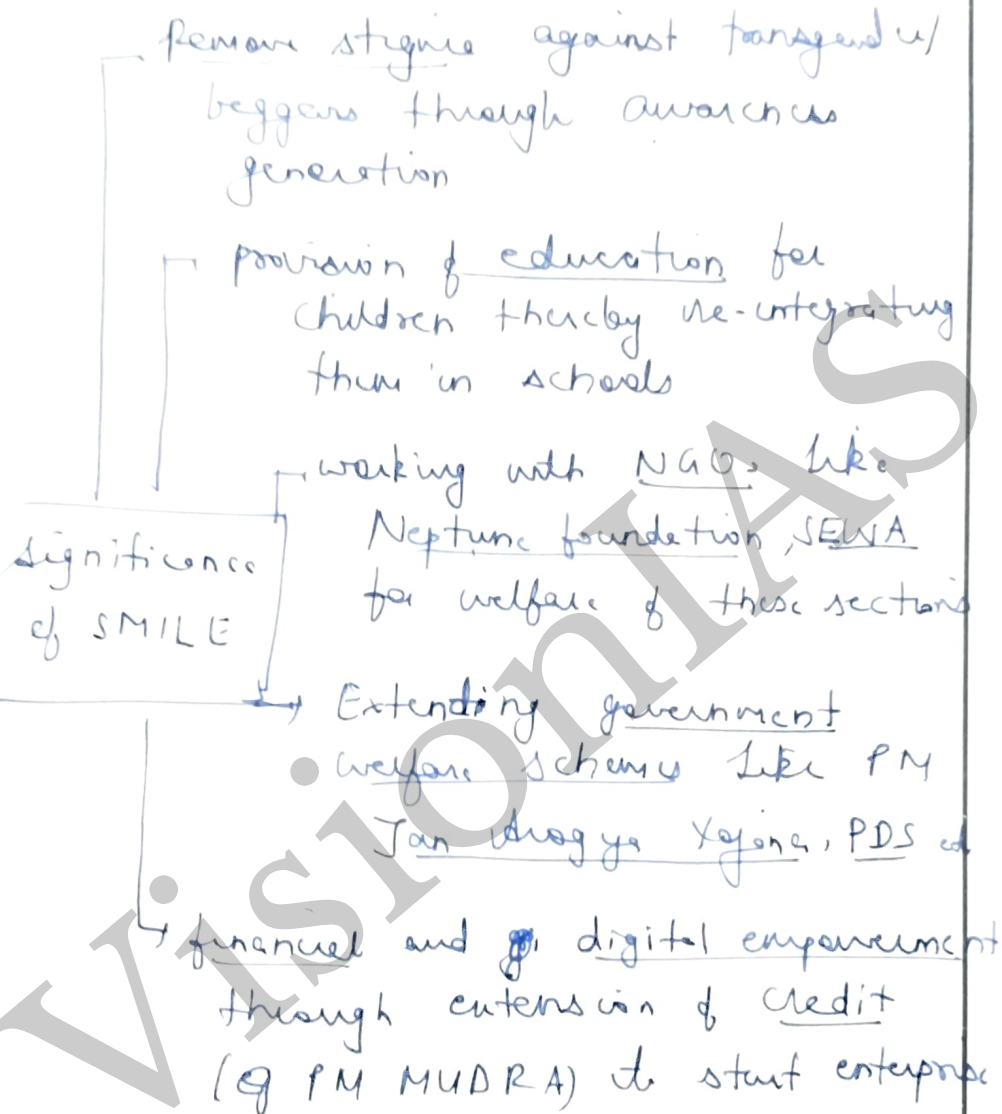 Remove stigma against transgender/
beggars through awareness
generation
provision of education for
children thereby re-integrating
them in schools
working with NGOs like
Neptune foundation, SEWA
for welfare of these sections
significance
of SMILE
Extending government
welfare schemes like PM
Jan Arogya Yojana, PDS
financial and digital empowerment
through extension of credit
(eg PM MUDRA) to start enterprise
VisionIAS